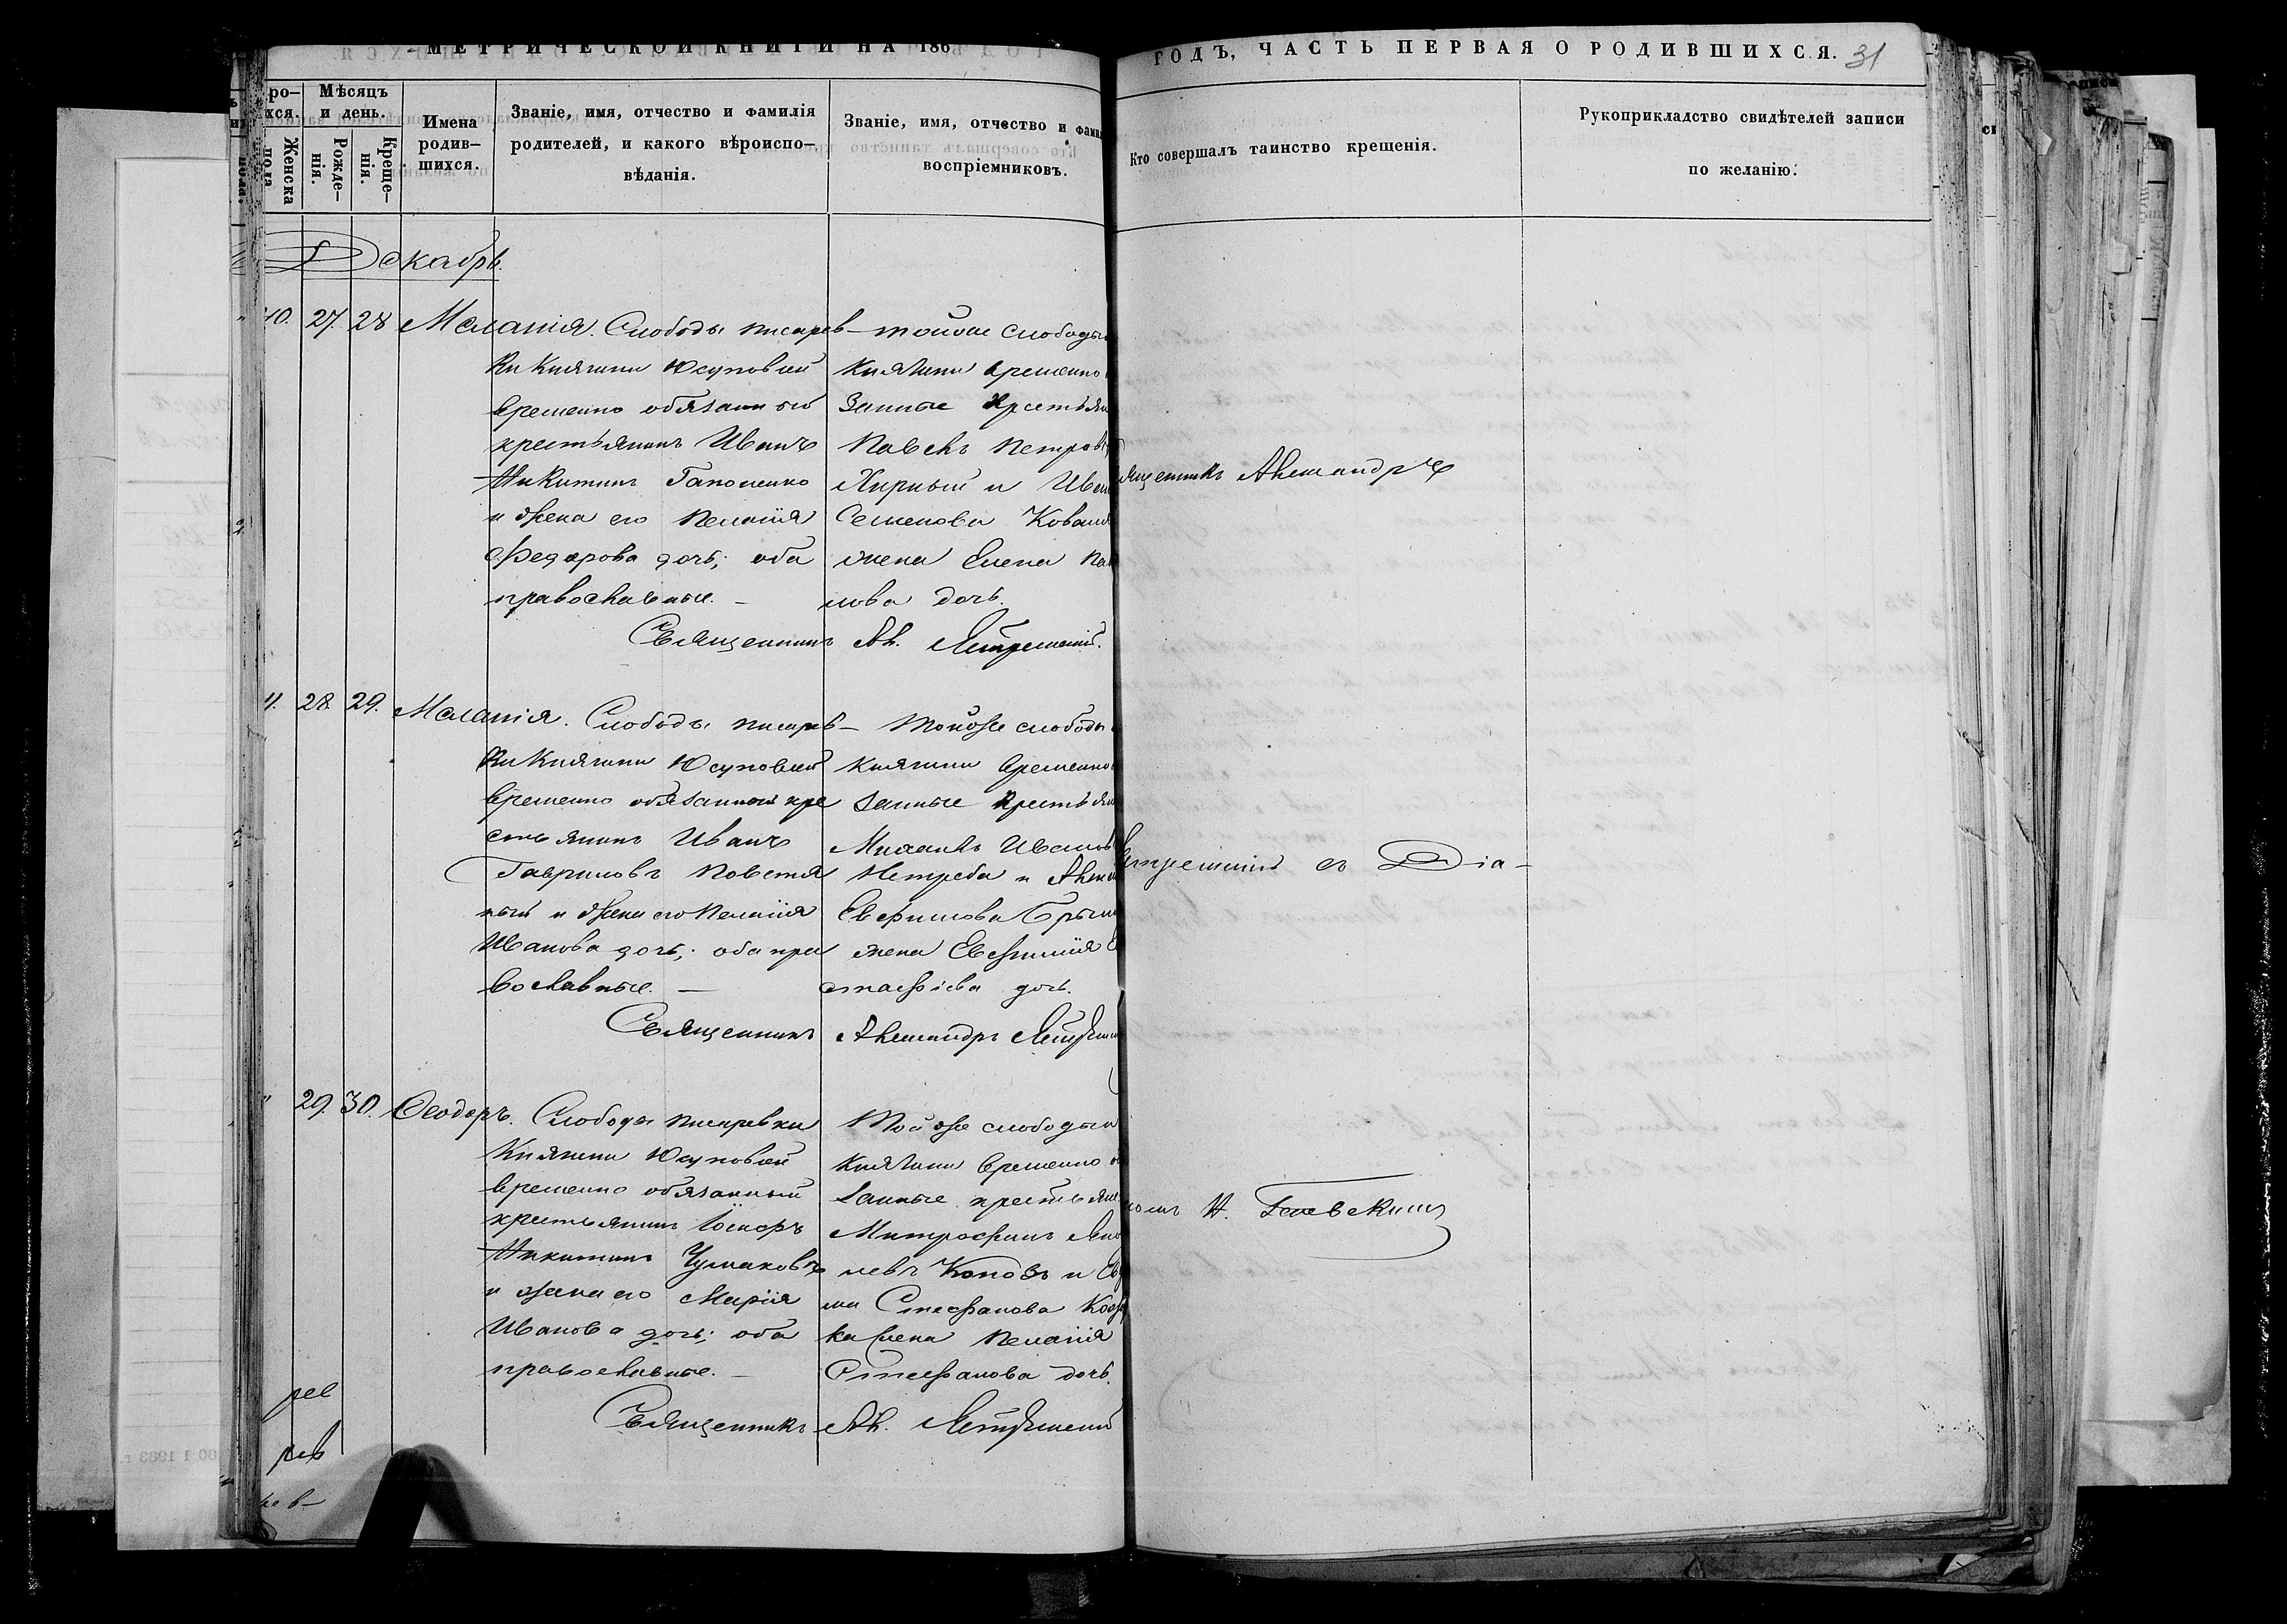 МЕТРИЧЕСКОЙ КНИГИ НА 186
ГОДЪ, ЧАСТЬ ПЕРВАЯ О РОДИВШИХСЯ. 31
ро–
хся.
Женска
пола
Мѣсяцъ
и день.
Рожде–
нія.
Креще–
нія.
Имена
родив–
шихся.
Званіе, имя, отчество и фамилія
родителей, и какого вѣроиспо–
вѣданія.
Званіе, имя, отчество и фами
воспріемниковъ.
Кто совершалъ таинство крещенія.
Рукоприкладство свидѣтелей записи
по желанію.
Декабрь.
40. 27. 28 Меланія. Слободы Писарев–
ки Княгини Юсуповой
временно обязанный
крестьянинъ Иванъ
Никитинъ Гапоненко
и жена его Пелагія
Федорова дочь; оба
православные. –
тойже слободы
Княгини временно
занные крестьян
Павелъ Петров
Жирный и Иван
Семенова Ковал
жена Елена Пав
лова дочь.
Священникъ Ал. Ястремскій.
41. 28. 29. Меланія. Слободы Писарев–
ки Княгини Юсуповой
временно обязанный кре
стьянинъ Иванъ
Гавриловъ Повстя
ный и жена его Пелагія
Иванова дочь; оба пра
вославные. –
Тойже слободы
Княгини временно
занные крестьян
Михаилъ Иванов
Нетреба и
Евфимова
жена Евфимія
стафіева дочь.
Священникъ Александръ
" 29. 30. Ѳеодоръ. Слободы Писаревки
Княгини Юсуповой
временно обязанный
крестьянинъ Іосифъ
Никитинъ Чумаковъ
и жена его Марія
Иванова дочь; оба
православные. –
Той же слободы
Княгини временно
занные крестьян
Митрофанъ
левъ и
ма Стефанова
ка жена Пелагія
Стефанова дочь.
Священникъ Ал. Ястремскій
ященникъ Александръ
стремскій съ Діа–
кономъ Н.
рев
рев
рев–